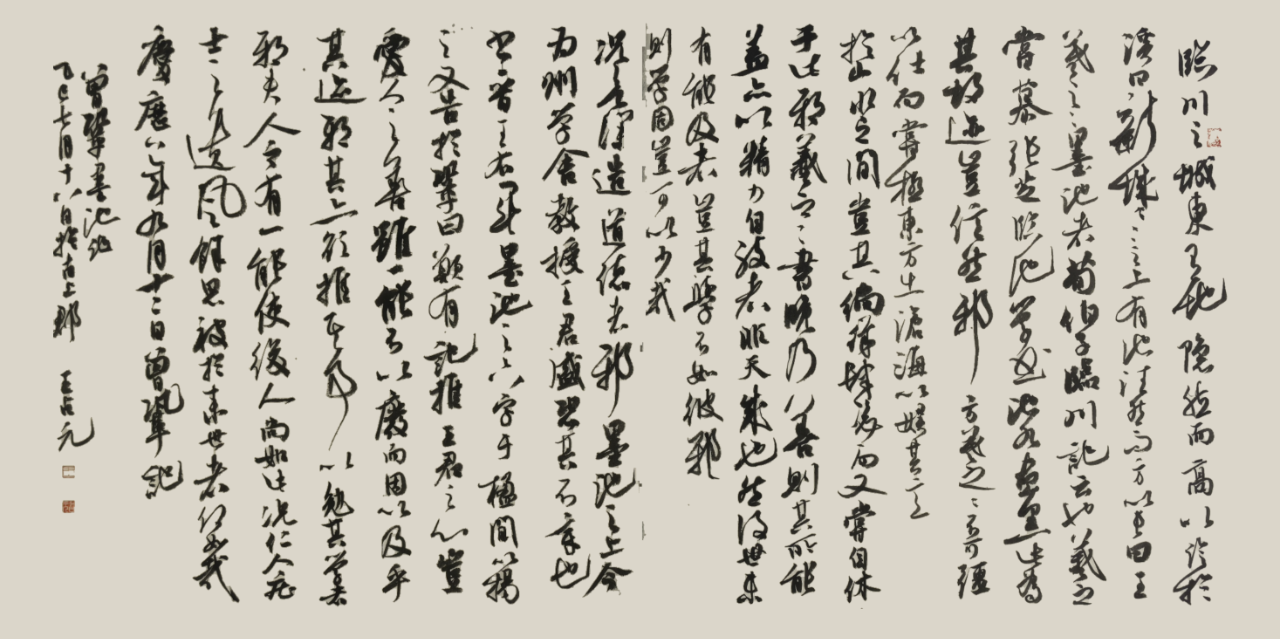 臨川之城東有地隐然而高以临於
溪曰新城新城之上有池洼然而方以長曰王
羲之之墨池者荀伯子臨川記云也羲之
嘗慕張芝臨池學書池水盡黑此為
其故迹豈信然邪方羲之之不可彊
以仕而嘗極東方出滄海以娱其意
於山水之間豈其徜徉肆恣而又嘗自休
于此邪羲之之書晚乃善則其所能
蓋亦以精力自致者非天成也然後世未
有能及者豈其學不如彼邪
則學固豈可以少哉
況欲深造道德者邪墨池之上今
为州學舍教授王君盛恐其不章也
书晉王右軍墨池之六字于楹間以揭
之又告於鞏曰願有記推王君之心豈
愛人之善雖一能不以廢而因以及乎
其迹邪其亦欲推其事以勉其學者
邪夫人之有一能使後人尚如此況仁人莊
士之遺風餘思被於来世者何如哉
慶曆八年九月十二日曾鞏記
曾鞏墨池记
乙巳七月十八日於古上郡 王占元